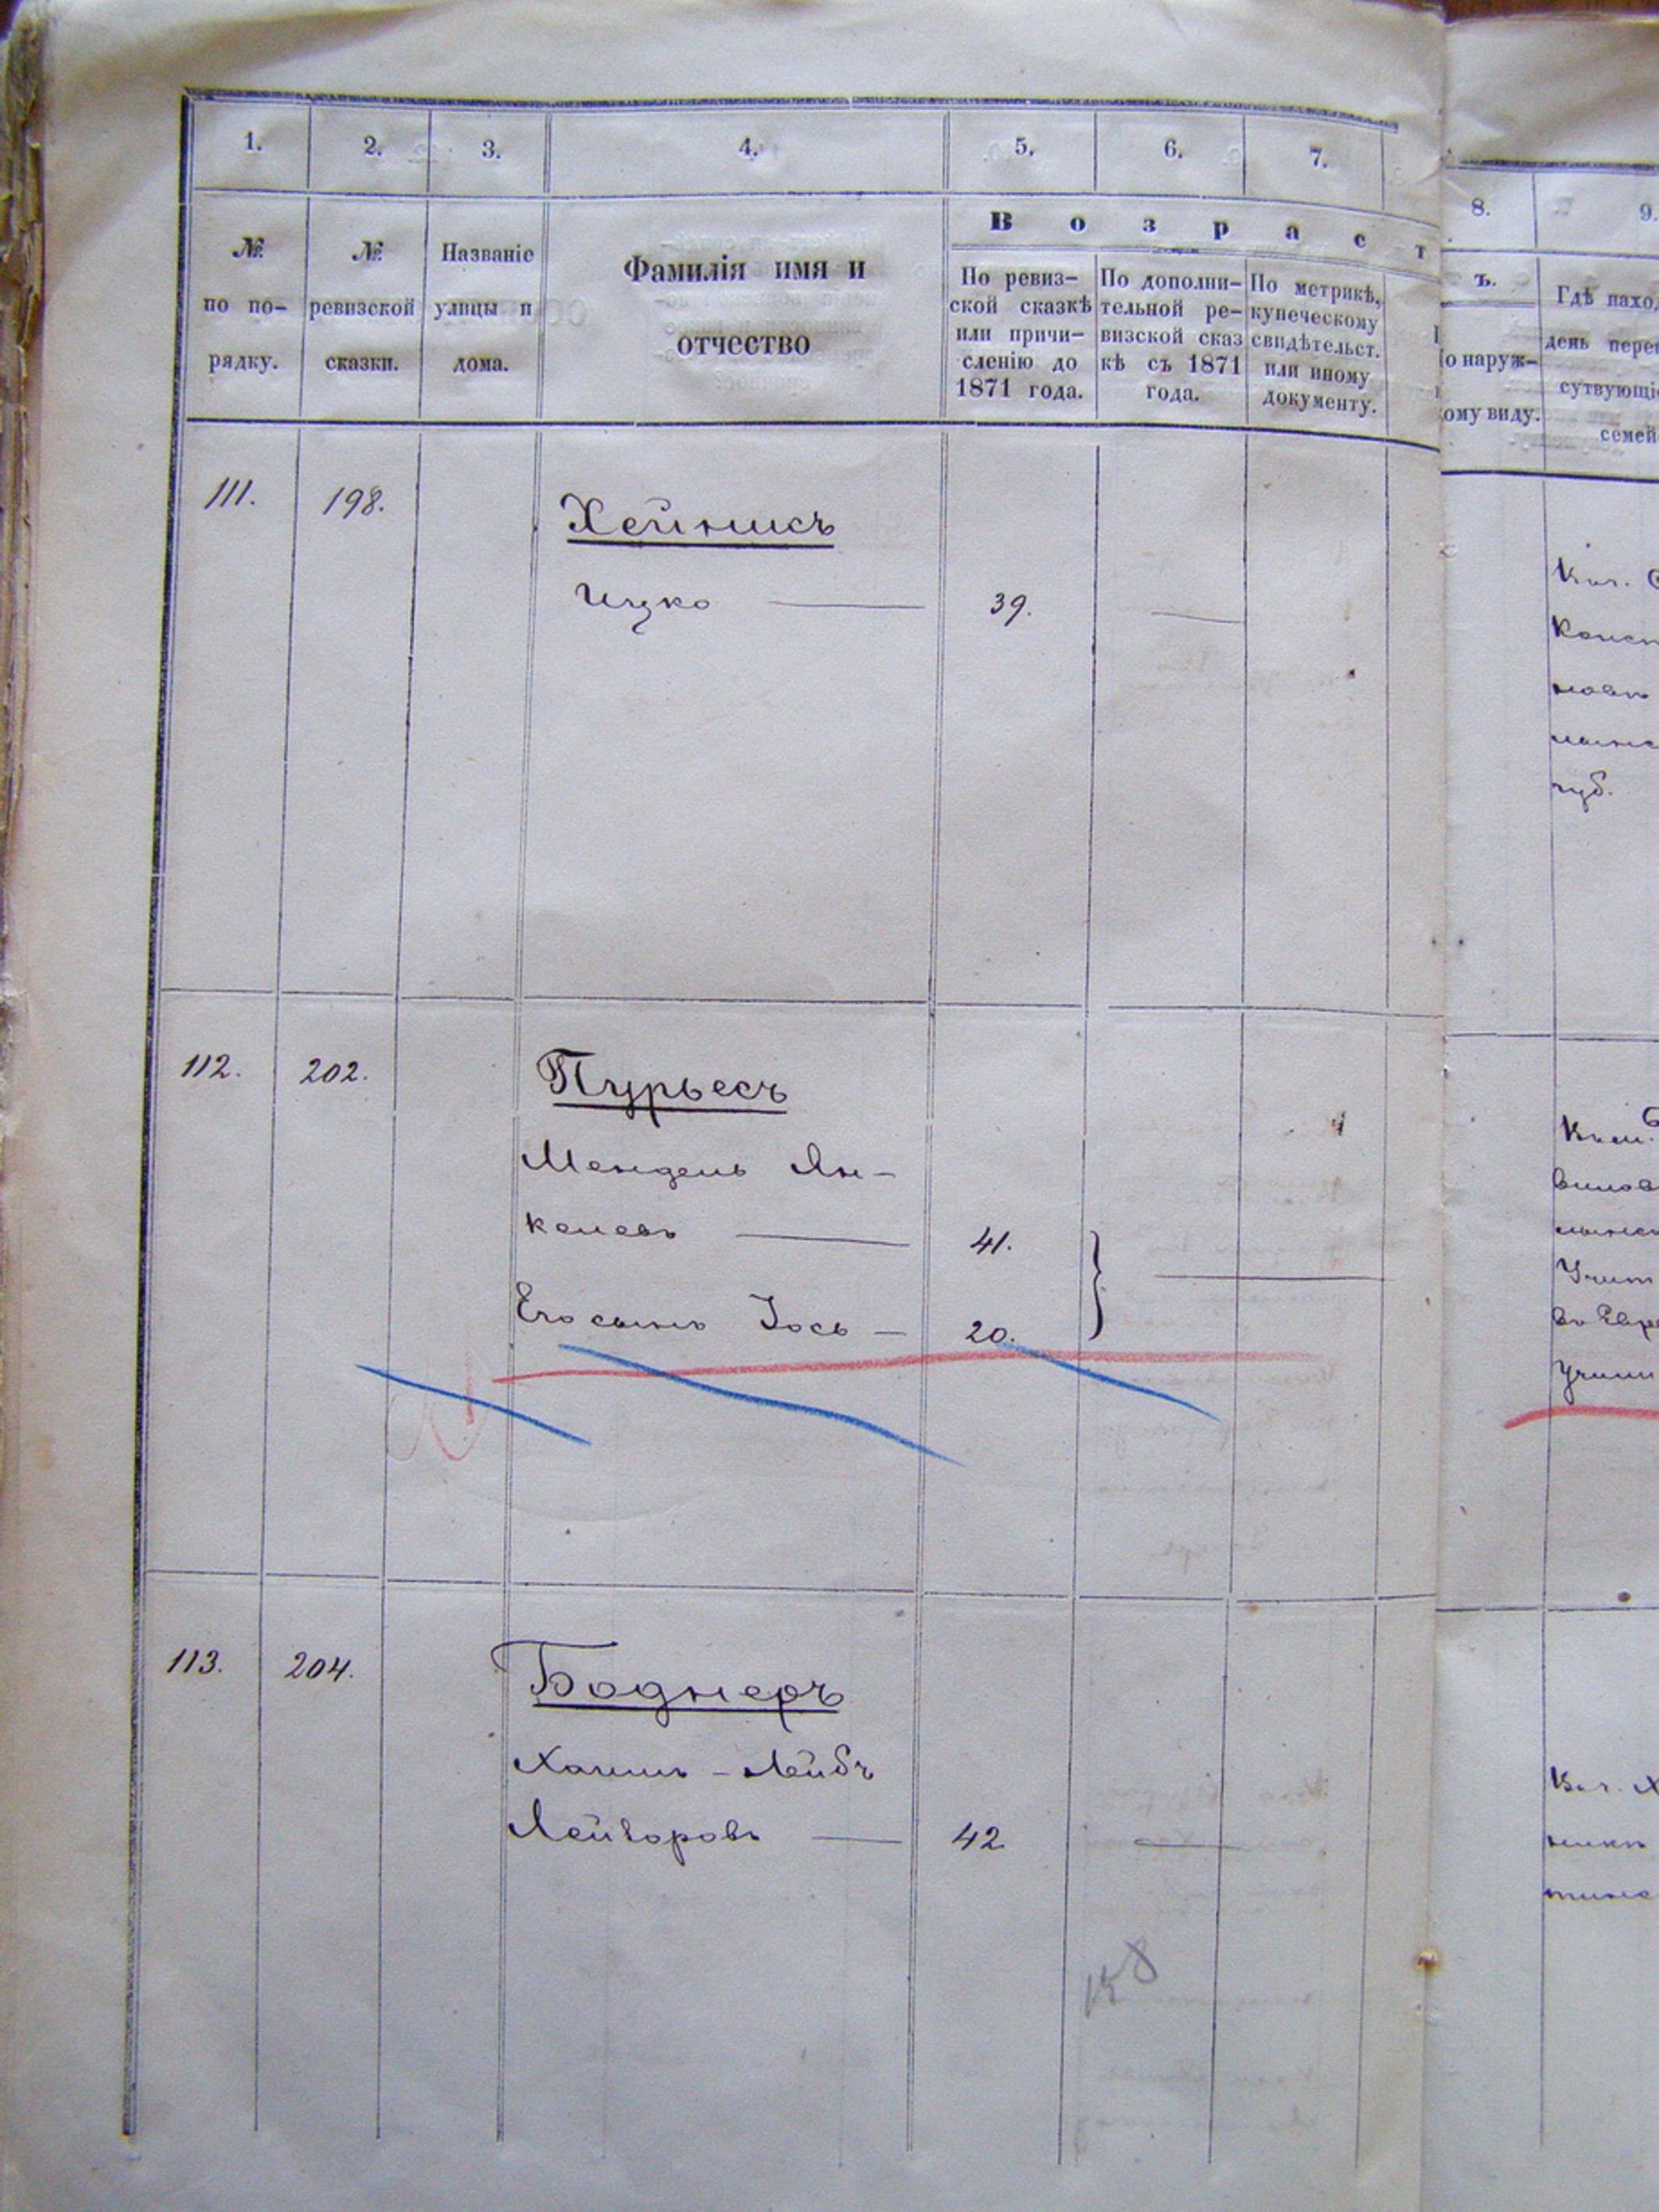 1. 2. 3. 4. 5. 6. 7.
8. 9.
№ по по-рядку.
№ ревизской сказки.
Названіе улицы и дома.
Фамилія имя и
отчество
В о з р а с т
ъ.
По ревиз-
ской сказкѣ
или причи-
сленію до
1871 года.
По дополни-
тельной ре-
визской сказ
кѣ съ 1871
года.
По метрикѣ,
купеческому
свидѣтельст.
или иному
документу.
о наруж-
ому виду.
Гдѣ наход
день пере
сутвующі
семей
111. 198. Хейникъ
Ицко — 39. —
губ.
112. 202. Пурьесъ
Мендель Ян-
келевъ — 41.
Его сынъ Іось — 20.
113. 204. Боднеръ
Хаимъ-Лейбъ
Лейзоровъ — 42 —